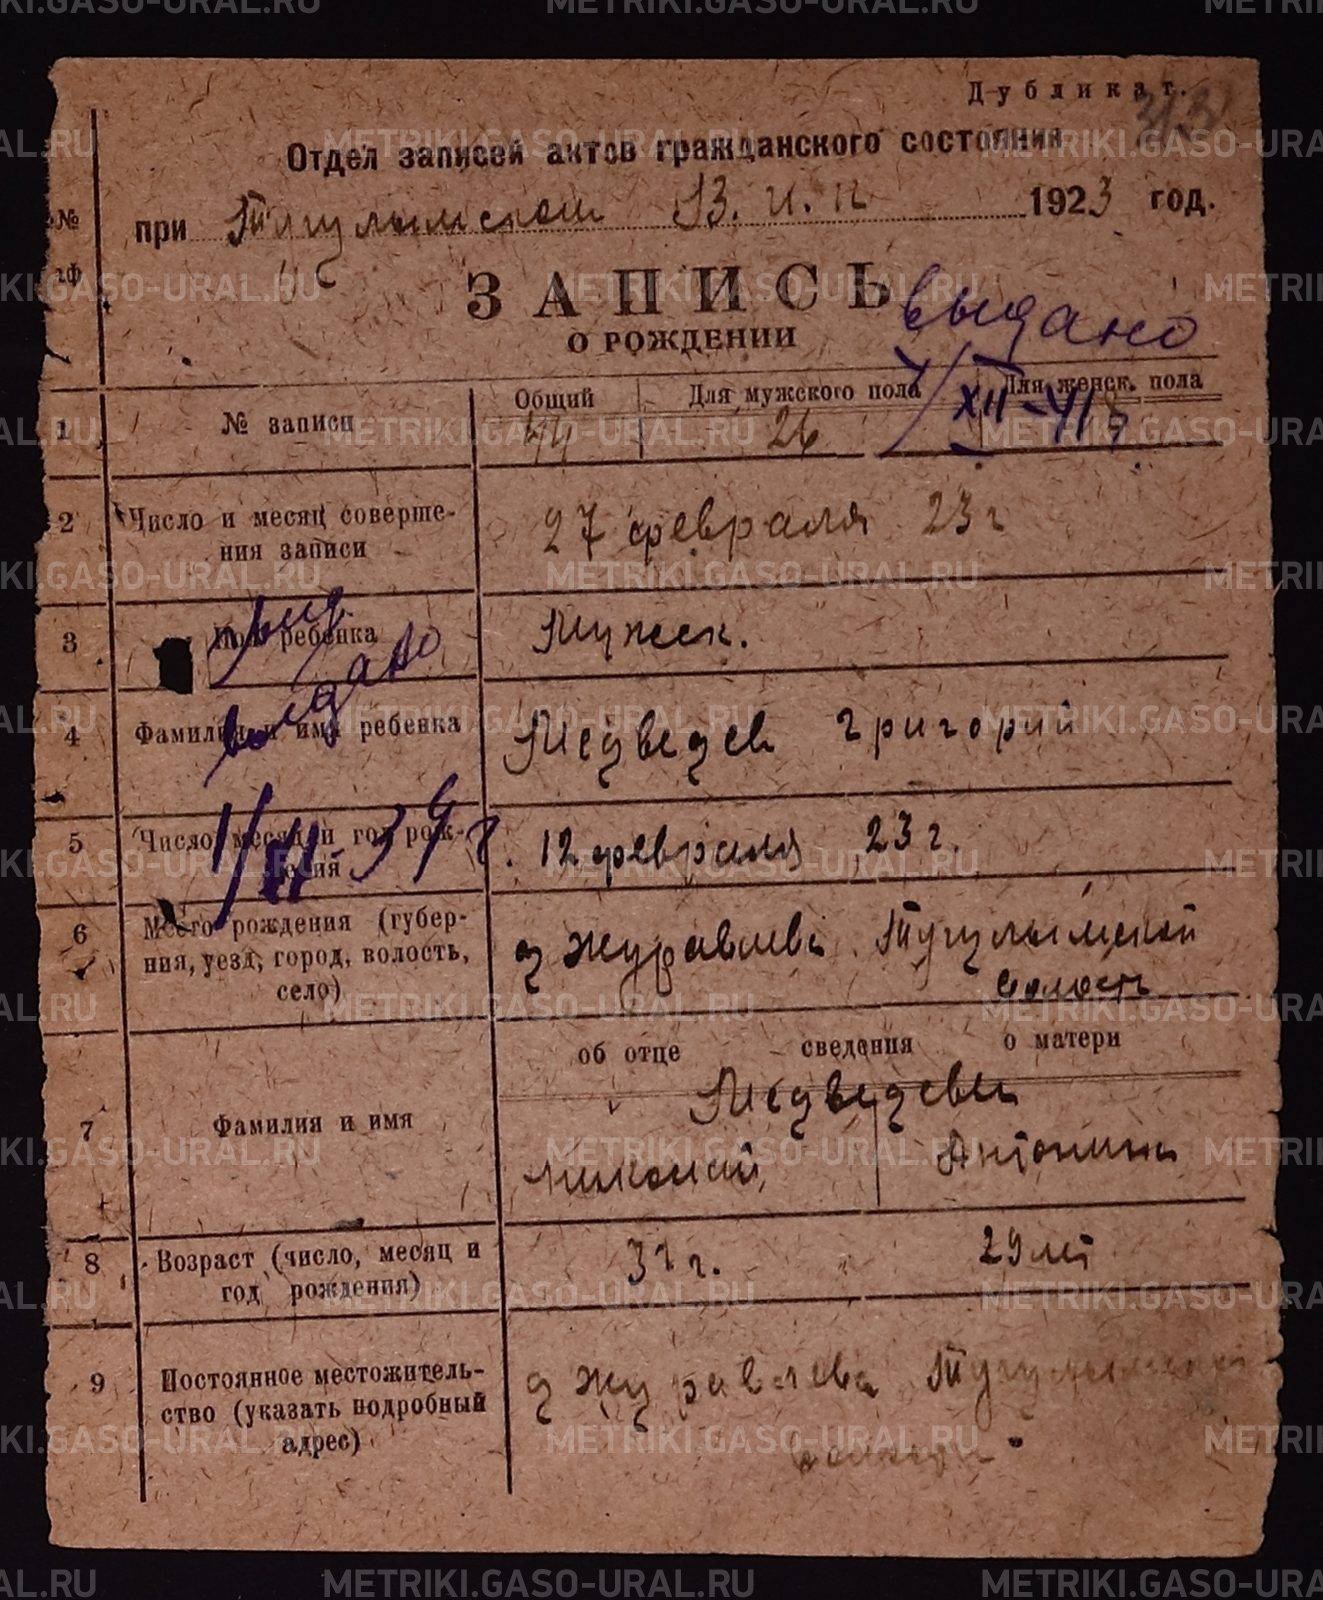 Дубликат.
313
Отдел записей актов гражданского состояния
№ при Тугулымском В. И. К 1923 год.
гф
ЗАПИСЬ
о рождении
выдано
Общий Для мужского пола Для женск. пола
1 № записи 44 26
2 Число и месяц соверше-
ния записи
27 февраля 23 г
3 Пол ребенка Мужск.
выдано
4 Фамилия и имя ребенка Медведев Григорий
5 Число, месяц и год рож-
дения
12 февраля 23 г.
6 Место рождения (губер-
ния, уезд, город, волость,
село)
д Журавлева Тугулымской
волость
об отце сведения о матери
Медведевы
7 Фамилия и имя
Николай Антонина
8 Возраст (число, месяц и
год рождения)
31 г. 29 лет
9 Постоянное местожитель-
ство (указать подробный
адрес)
д Журавлева Тугулымской
METRIKI.GASO-URAL.RU